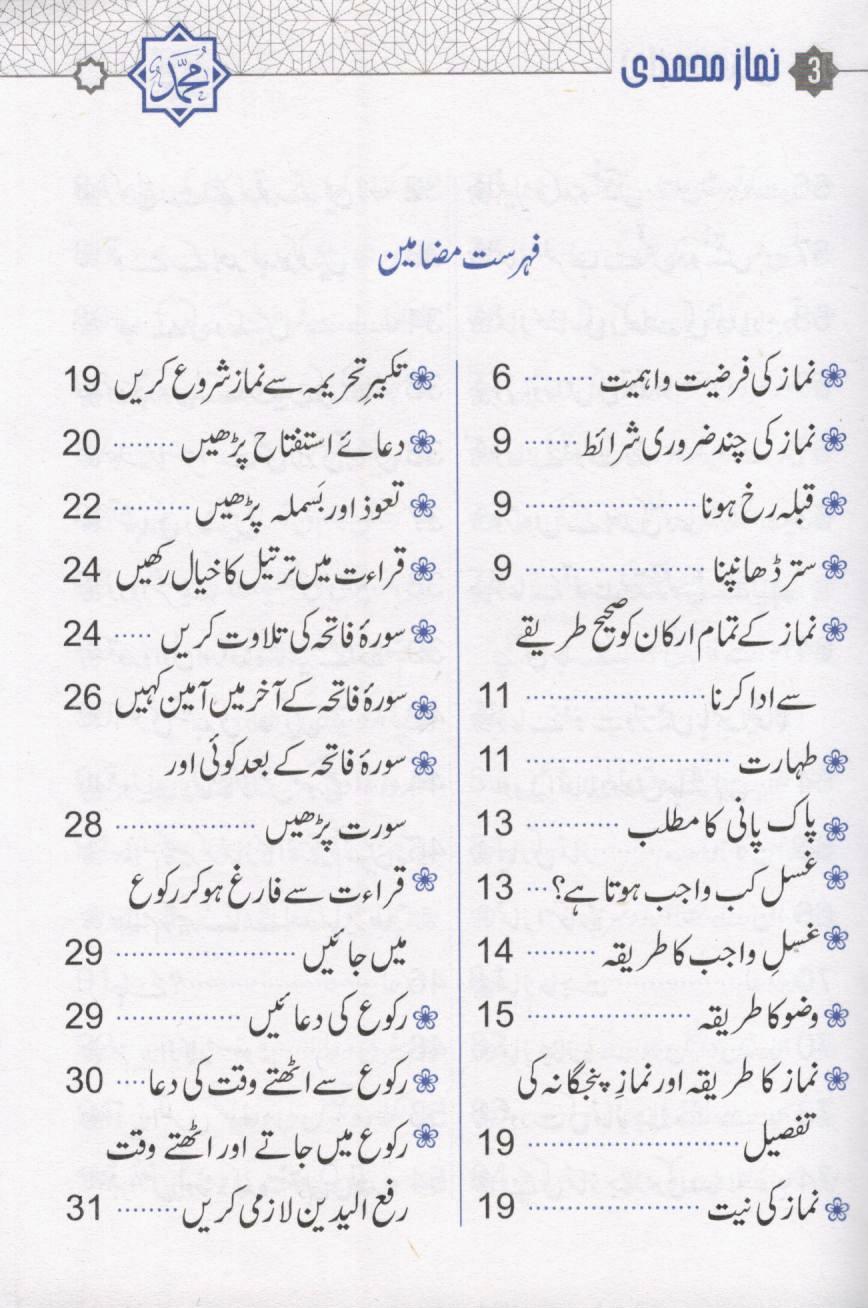 3 نماز محمدی
محمد
فہرست مضامین
نماز کی فرضیت و اہمیت ········· 6
نماز کی چند ضروری شرائط ······ 9
قبلہ رخ ہونا ···················· 9
ستر ڈھانپنا ···················· 9
نماز کے تمام ارکان کو صحیح طریقے
سے ادا کرنا ···················· 11
طہارت ······················· 11
پاک پانی کا مطلب ·········· 13
غسل کب واجب ہوتا ہے؟ ··· 13
غسلِ واجب کا طریقہ ········ 14
وضو کا طریقہ ·················· 15
نماز کا طریقہ اور نمازِ پنجگانہ کی
تفصیل ······················· 19
نماز کی نیت ··················· 19
تکبیرِ تحریمہ سے نماز شروع کریں 19
دعائے استفتاح پڑھیں ········ 20
تعوذ اور بَسملہ پڑھیں ········· 22
قراءت میں ترتیل کا خیال رکھیں 24
سورۂ فاتحہ کی تلاوت کریں ····· 24
سورۂ فاتحہ کے آخر میں آمین کہیں 26
سورۂ فاتحہ کے بعد کوئی اور
سورت پڑھیں ················ 28
قراءت سے فارغ ہو کر رکوع
میں جائیں ···················· 29
رکوع کی دعائیں ··············· 29
رکوع سے اٹھتے وقت کی دعا ···· 30
رکوع میں جاتے اور اٹھتے وقت
رفع الیدین لازمی کریں ········ 31